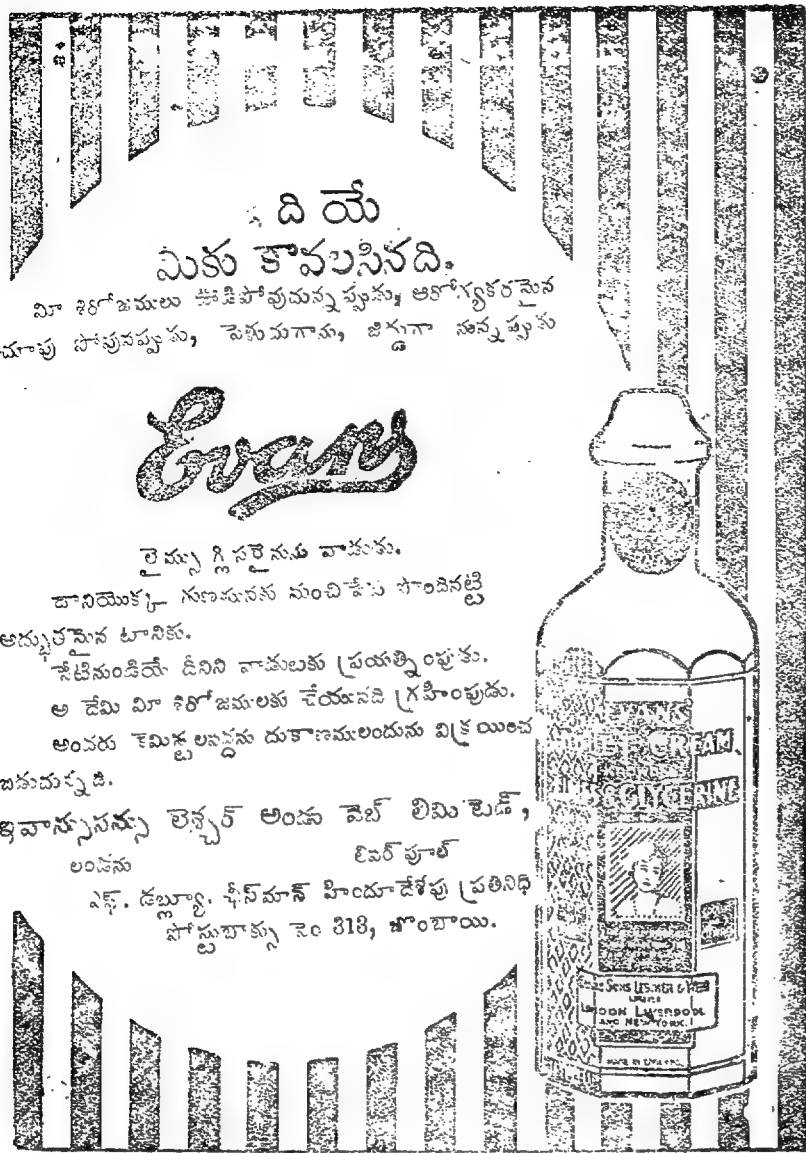 ది యే
మీకు కావలసినది.
మీ శిరోజములు ఊడిపోవుచున్నప్పుడు, ఆరోగ్యకరమైన
చూపు పోవునప్పుడు, పెళుసుగాను, జిడ్డుగా నున్నప్పుడు
Evans
లైమ్సు గ్లిసరైనును వాడుడు.
దానియొక్క గుణమునకు మంచిపేరు పొందినట్టి
అద్భుతమైన టానికు.
నేటినుండియే దీనిని వాడుటకు ప్రయత్నింపుడు.
అ దేమి మీ శిరోజములకు చేయునది గ్రహింపుడు.
అందరు కెమిస్టులవద్దను దుకాణములందును విక్రయించ
బడుచున్నది.
ఇవాన్సుసన్సు లెశ్చర్ అండు వెబ్ లిమిటెడ్,
లండను లివర్ పూల్
ఎఫ్. డబ్ల్యూ. హీన్‌మాన్ హిందూదేశపు ప్రతినిధి
పోస్టుబాక్సు నెం 313, బొంబాయి.
CREAM
GLYCERINE
SONS LESCHER & WEBB
LIMITED
LONDON LIVERPOOL
AND NEW YORK.
MADE IN ENGLAND